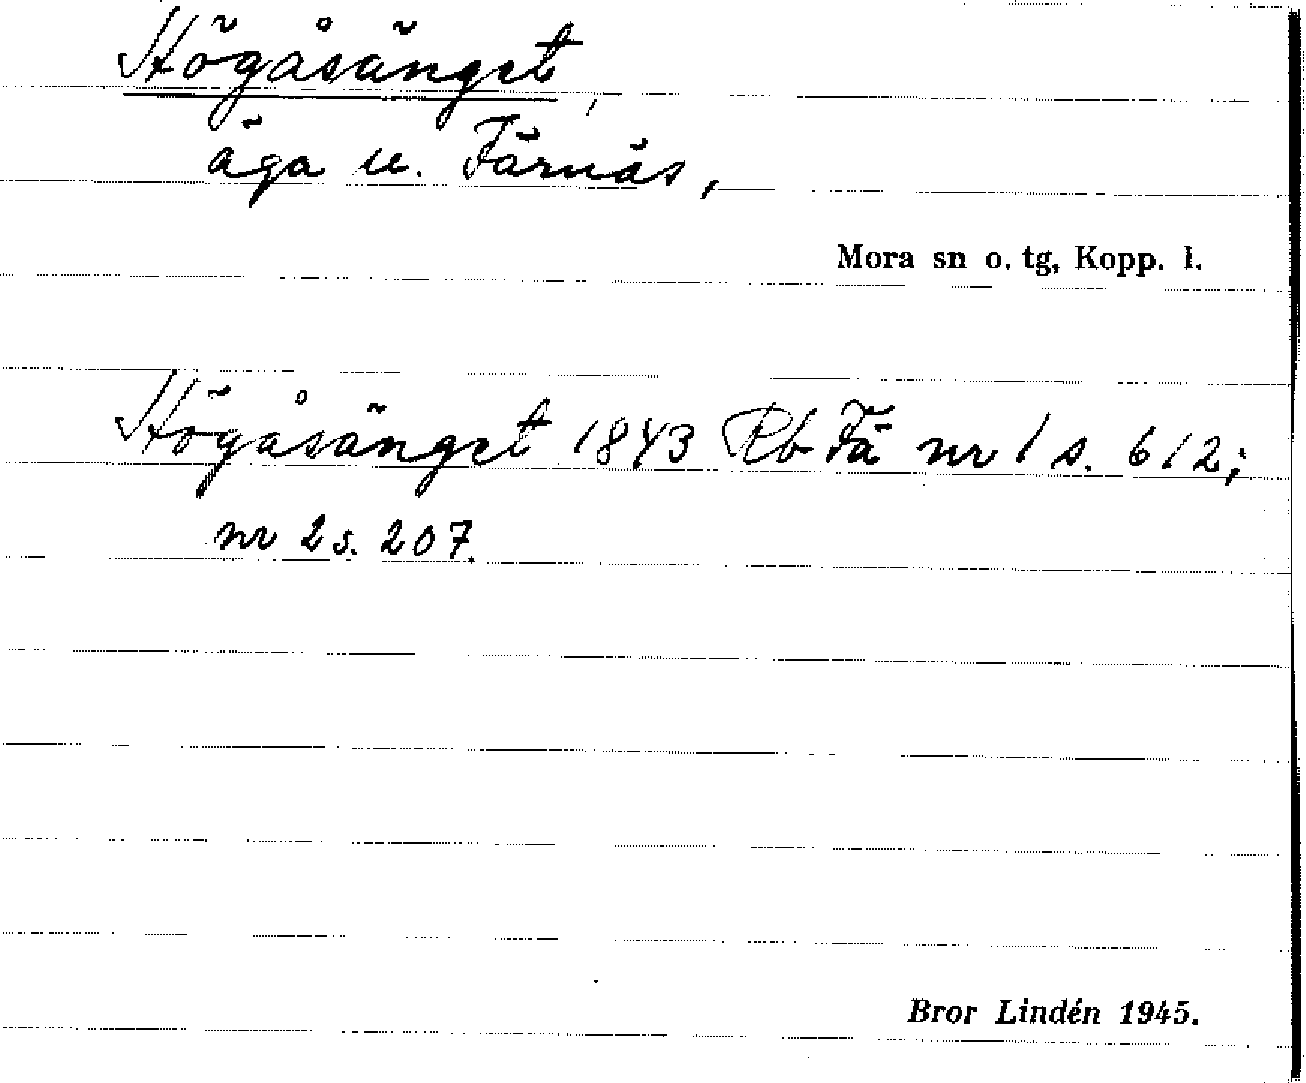 Högåsänget,
äga u. Färnäs,
Mora sn o. tg, Kopp. l.
Högåsänget 1843 Rb Fä nr 1 s. 612;
nr 2 s. 207.
Bror Lindén 1945.